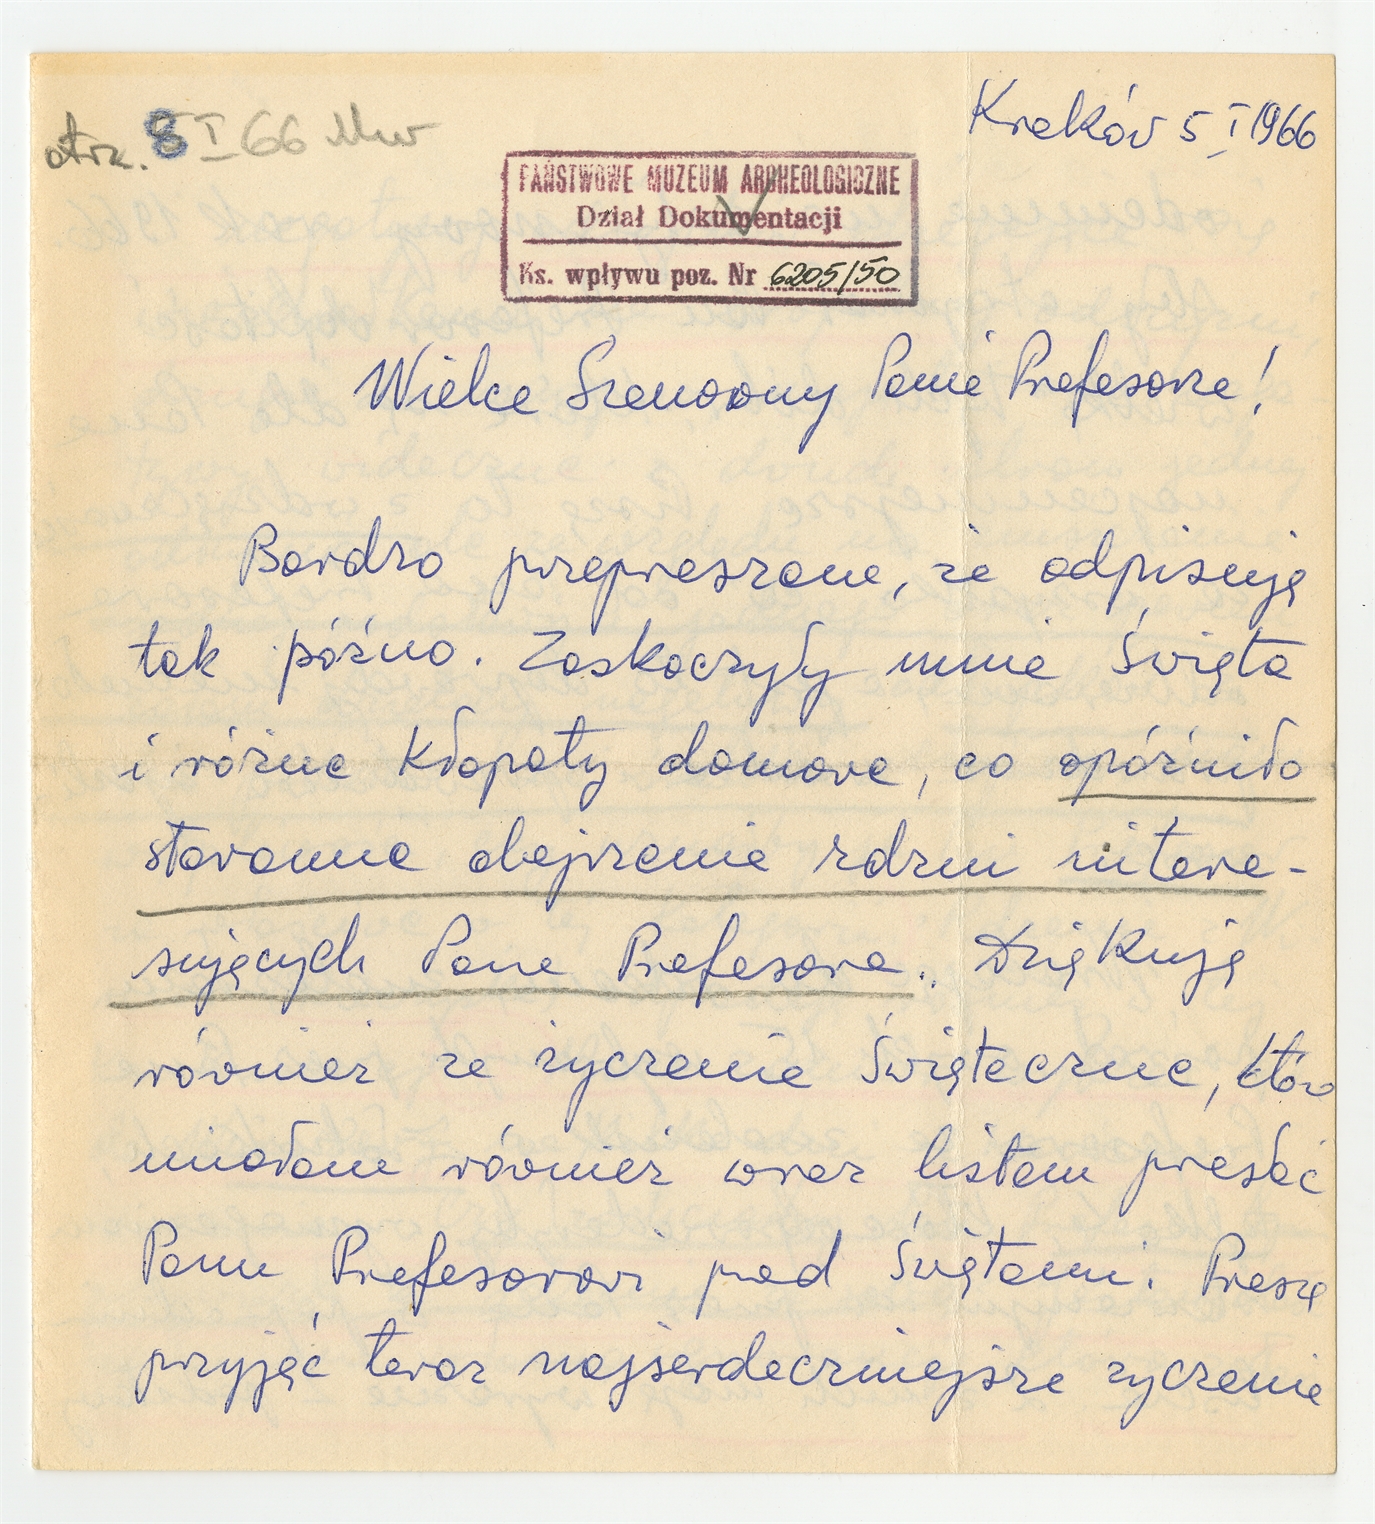 otrz. 8 I 66 Mw
Kraków 5 I 1966
PAŃSTWOWE MUZEUM ARCHEOLOGICZNE
Dział Dokumentacji
Ks. wpływu poz. Nr 6205/50
Wielce Szanowny Panie Profesorze!
Bardzo przepraszam, że odpisuję
tak późno. Zaskoczyły mnie Święta
i różne kłopoty domowe, co opóźniło
staranne obejrzenie rdzeni intere-
sujących Pana Profesora. Dziękuję
również za życzenia Świąteczne, które
miałam również wraz listem przesłać
Panu Profesorowi przed Świętami. Proszę
przyjąć teraz najserdeczniejsze życzenia